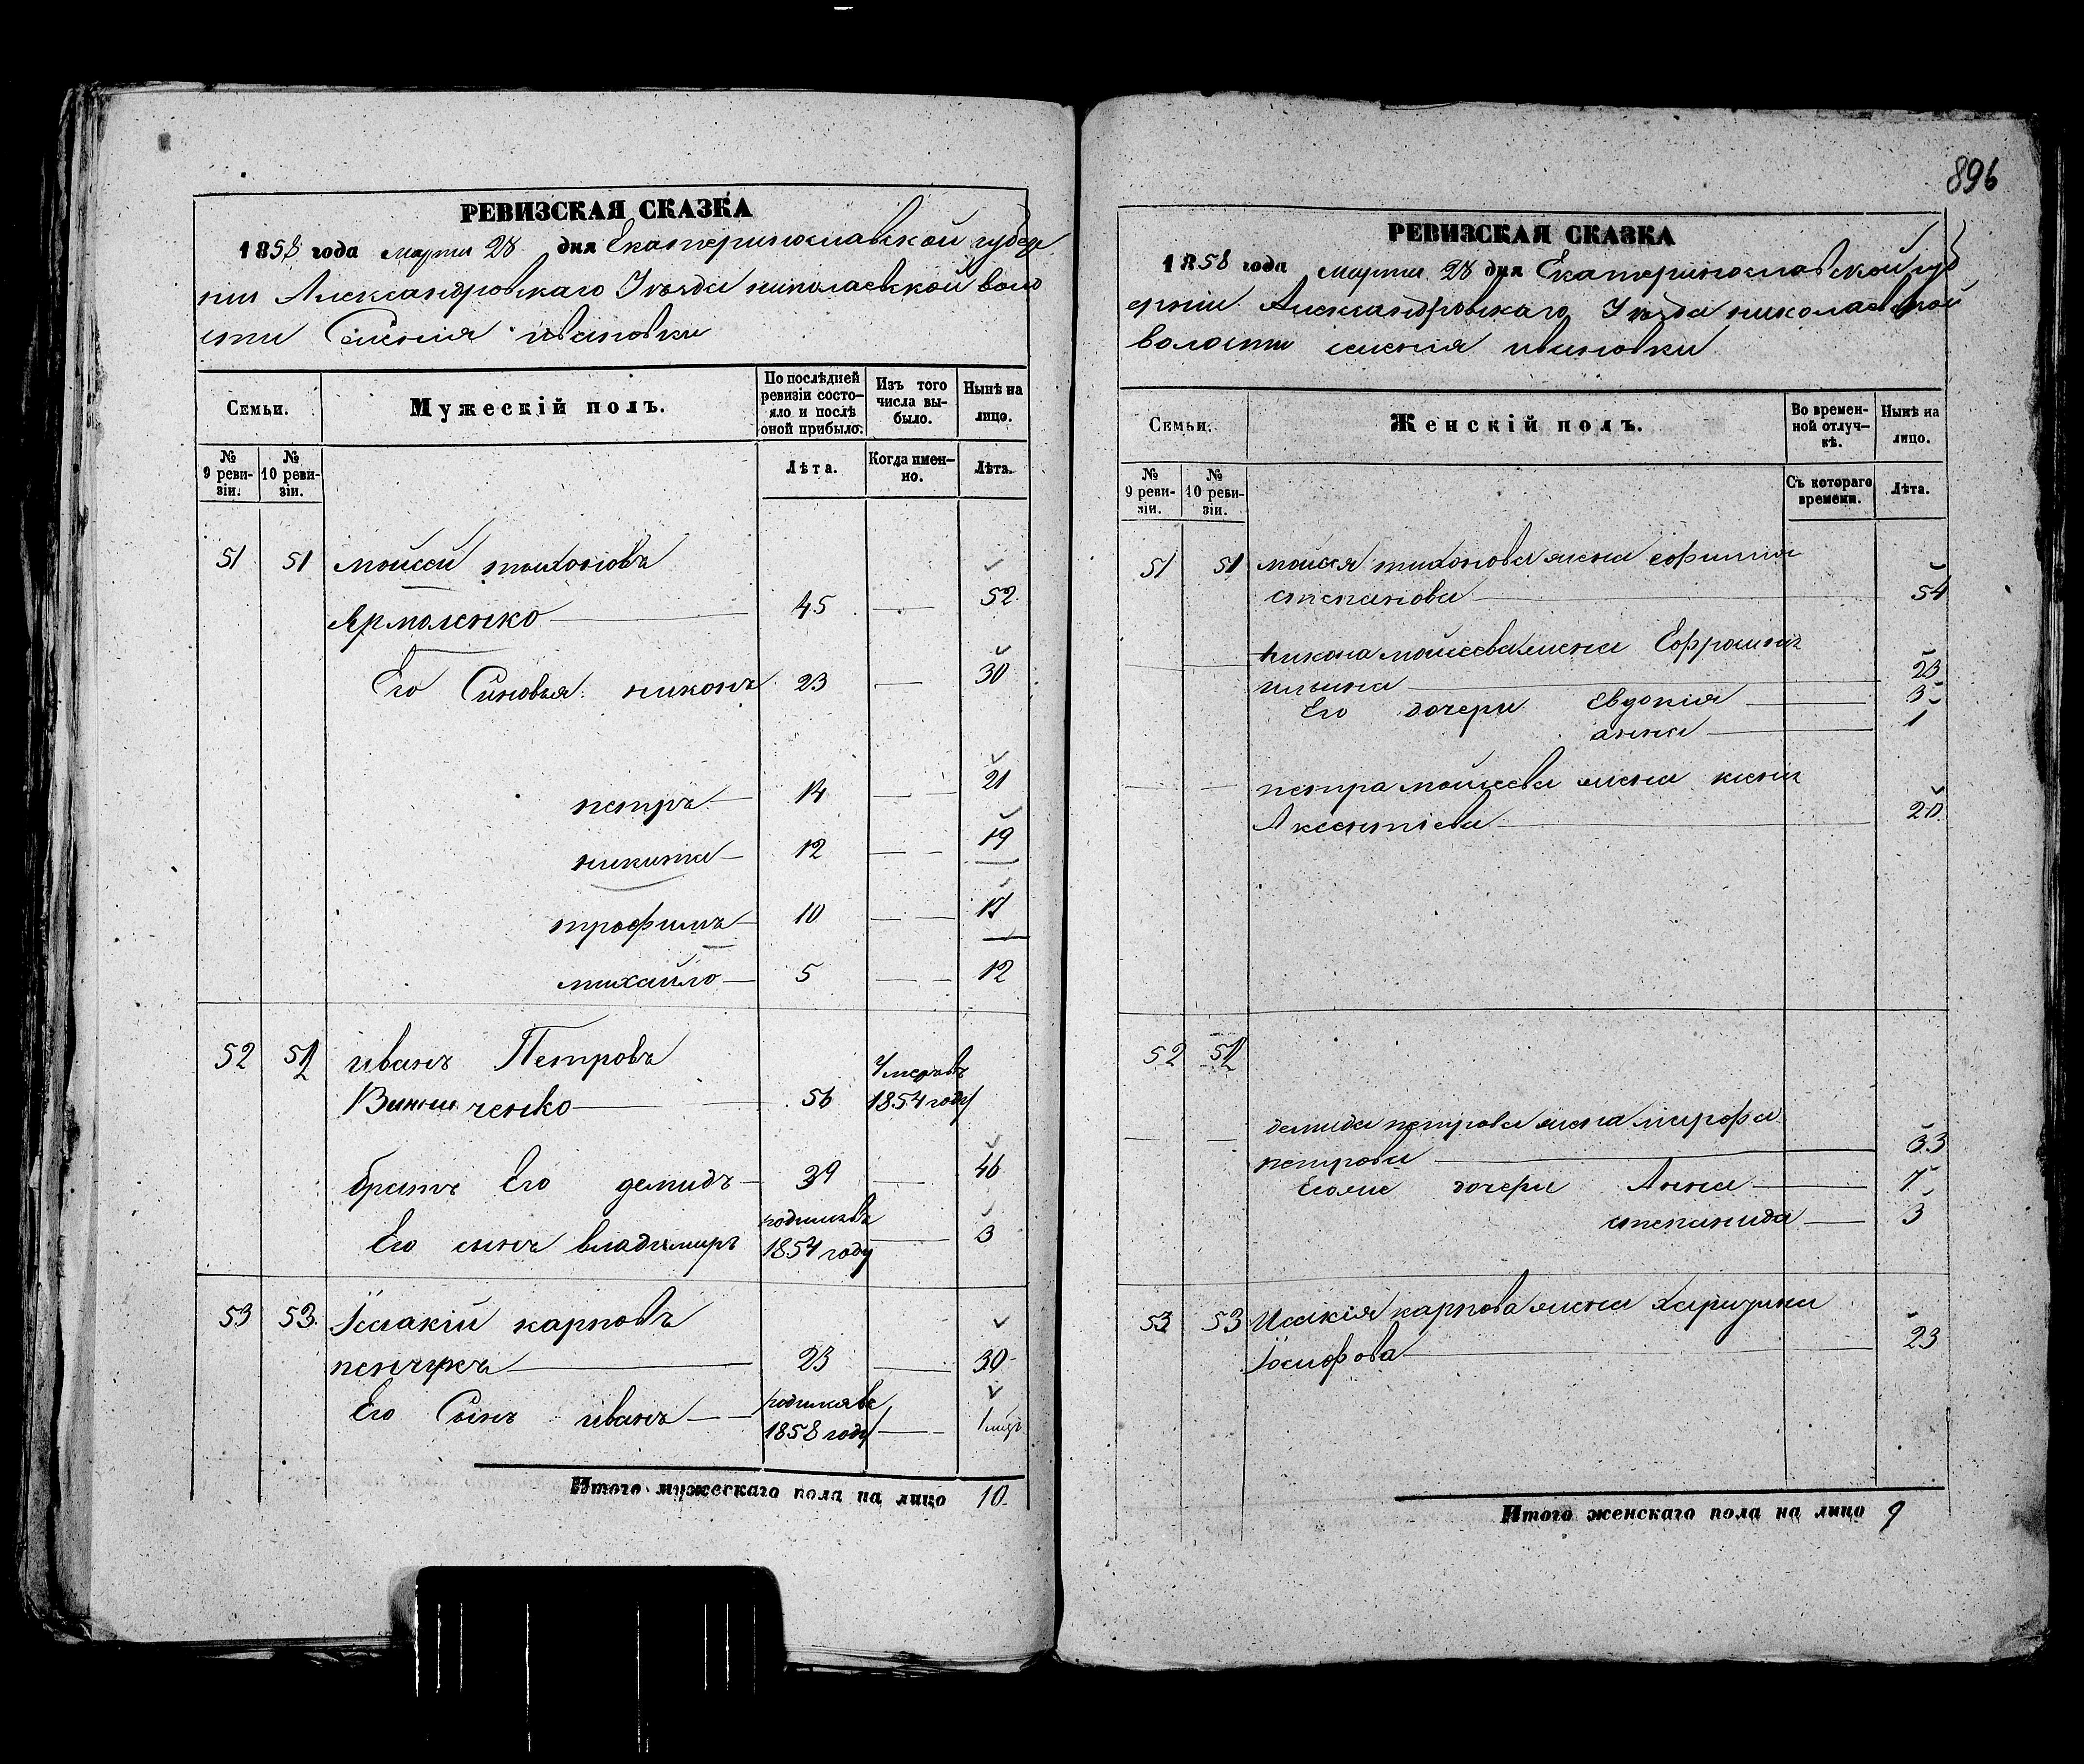 896
РЕВИЗСКАЯ СКАЗКА
1858 года марта 28 дня Екатеринославской губер
нии Александровскаго Уезда николаевской воло
сти Селения ивановки
Семьи.
Мужескій полъ.
По послѣдней ревизіи состо-яло и послѣ оной прибыло.
Изъ того числа вы-было.
Нынѣ на лицо.
№ 9 реви-зіи.
№ 10 реви-зіи.
Лѣта.
Когда имен-но.
Лѣта.
51 51 мойсей тихоновъ
Ярмоленко 45 — 52
Его Синовья: никонъ 23 — 30
петръ 14 — 21
никита 12 — 19
трофимъ 10 — 17
михайло 5 — 12
52 52 иванъ Петровъ
Винниченко 56 Умеръ въ 1854 году
братъ Его демидъ 39 — 46
Его сынъ владимиръ родился въ 1854 году — 3
53 53 Ісаакій карповъ
23 — 30
Его Сынъ иванъ родился въ 1858 году — 1 мѣс.
Итого мужескаго пола на лицо 10
РЕВИЗСКАЯ СКАЗКА
1858 года марта 28 дня Екатеринославской губ
ерніи Александровскаго Уезда николаевской
волости селения ивановки
Семьи.
Женскій полъ.
Во времен-ной отлуч-кѣ.
Нынѣ на лицо.
№ 9 реви-зіи.
№ 10 реви-зіи.
Съ котораго времени.
Лѣта.
51 51 мойсея тихонова жена ефимия
степанова 54
никона мойсеева жена Ефросинъ
ильина 23
Его дочери Евдокія 3
анна 1
петра мойсеева жена
Аксентіева 20
52 52
демида петрова жена марфа
петрова 33
Его же дочери Анна 7
степанида 3
53 53 Исакія карпова жена Харитина
Іосифова 23
Итого женскаго пола на лицо 9